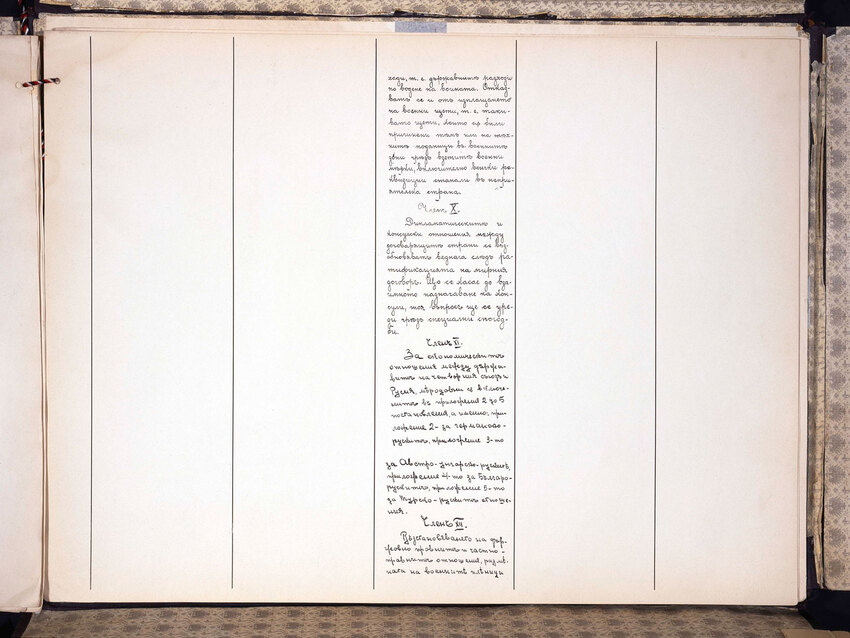 ходи, т. е. държавнитѣ разходи
по водене на войната. Отказ-
ватъ се и отъ изплащането
на военни щети, т. е. таки-
вато щети, които сѫ били
причинени тѣмъ или на тѣх-
нитѣ поданници въ военнитѣ
зони чрѣзъ взетитѣ военни
мѣрки, включително всички ре-
квизиции станали въ непри-
ятелска страна.
Членъ X.
Дипломатическитѣ и
консулски отношения между
договарящитѣ страни се въз-
обновяватъ веднага слѣдъ ра-
тификацията на мирния
договоръ. Що се касае до вза-
имното назначаване на кон-
сули, тоя въпросъ ще се уре-
ди чрѣзъ специални спогод-
би.
Членъ XI.
За економическитѣ
отношения между държа-
витѣ на четворния съюзъ и
Русия, мѣродавни сѫ включе-
нитѣ въ приложения 2 до 5
постановления, а именно: при-
ложение 2- за германско-
рускитѣ, приложение 3-то
за Австро-унгарско-рускитѣ,
приложение 4-то за Българо-
рускитѣ, приложение 5-то
за Турско-рускитѣ отноше-
ния.
Членъ XII.
Възстановяването на дър-
жавно правнитѣ и частно-
правнитѣ отношения, размѣ-
ната на военнитѣ плѣнници